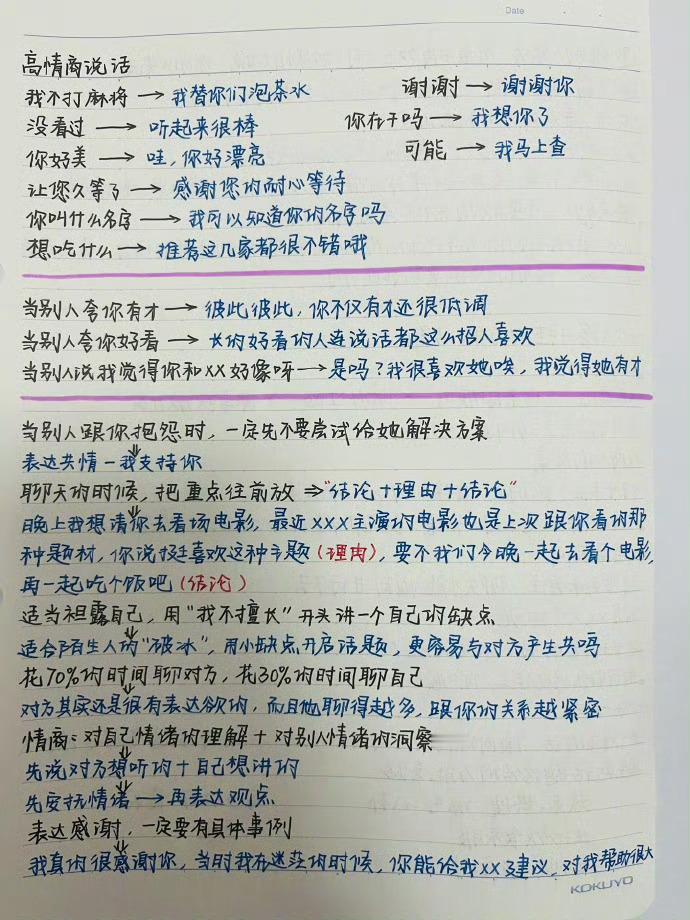 Date
高情商说话
我不打麻将 → 我替你们泡茶水 谢谢 → 谢谢你
没看过 → 听起来很棒 你在干吗 → 我想你了
你好美 → 哇，你好漂亮 可能 → 我马上查
让您久等了 → 感谢您的耐心等待
你叫什么名字 → 我可以知道你的名字吗
想吃什么 → 推荐这几家都很不错哦
当别人夸你有才 → 彼此彼此，你不仅有才还很低调
当别人夸你好看 → 长的好看的人连说话都这么招人喜欢
当别人说我觉得你和XX好像呀 → 是吗？我很喜欢她唉，我觉得她有才
当别人跟你抱怨时，一定先不要尝试给她解决方案
表达共情－我支持你
聊天的时候，把重点往前放 ⇒ "结论＋理由＋结论"
晚上我想请你去看场电影，最近XXX主演的电影也是上次跟你看的那
种题材，你说挺喜欢这种主题（理由），要不我们今晚一起去看个电影，
再一起吃个饭吧（结论）
适当袒露自己，用"我不擅长"开头讲一个自己的缺点
适合陌生人的"破冰"，用小缺点开启话题，更容易与对方产生共鸣
花70%的时间聊对方，花30%的时间聊自己
对方其实还是很有表达欲的，而且他聊得越多，跟你的关系越紧密
情商：对自己情绪的理解＋对别人情绪的洞察
先说对方想听的＋自己想讲的
先安抚情绪 → 再表达观点
表达感谢，一定要有具体事例
我真的很感谢你，当时我在迷茫的时候，你能给我XX建议，对我帮助很大
KOKUYO